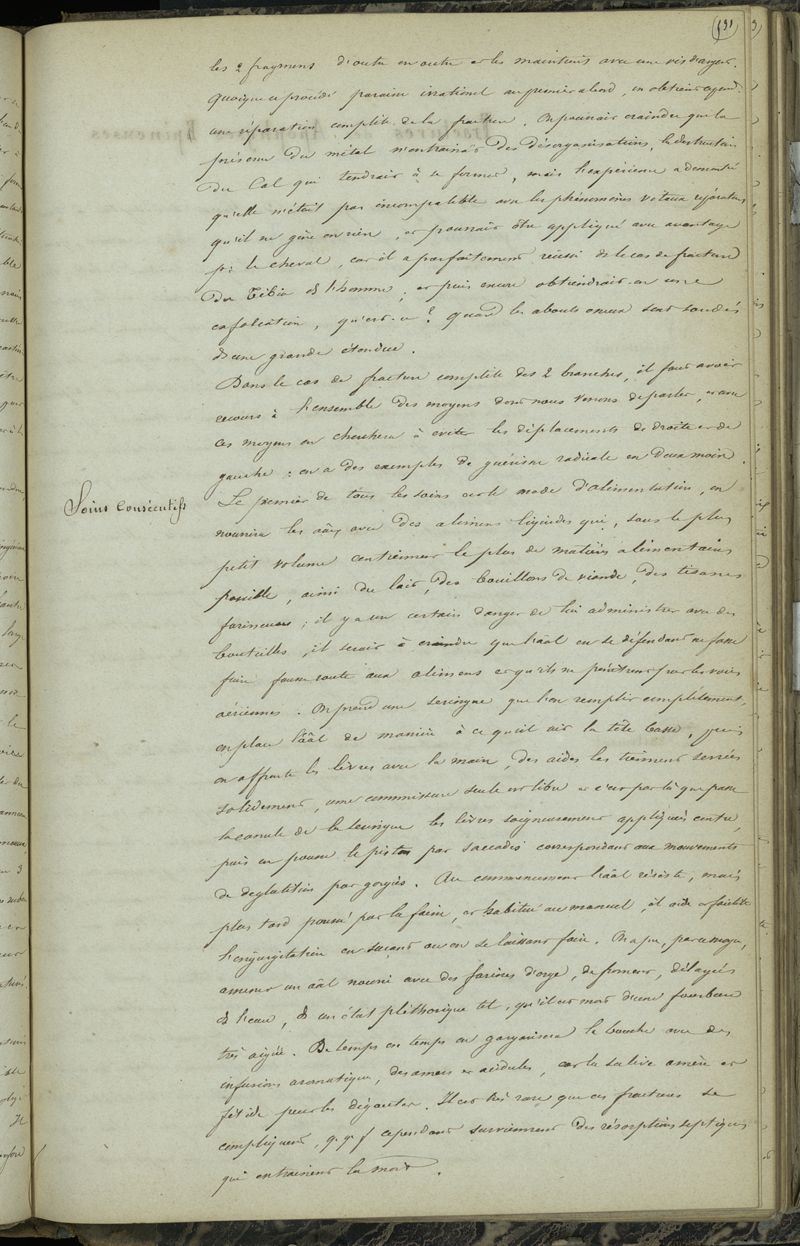 131
les 2 fragmens d'outre en outre et les maintenir avec une vis d'argent.
Quoique ce procédé paraisse irrationel au premier abord, on obtient cepend.
une réparation complète de la fracture. On pouvait craindre que la
présence du métal n'entrainât des désorganisations, la destruction
du Cal qui tendrait à se former, mais l'expérience a démontré
qu'elle n'était pas incompatible avec les phénomènes vitaux réparateurs
qu'il ne gêne en rien, et pourrait être appliqué avec avantage
pr le cheval, car il a parfaitement réussi ds le cas de fracture
du Tibia ds l'homme; et puis encore obtiendrait-on une
exfoliation, qu'est-ce? quand les abouts osseux sont soudés
ds une grande étendue.
Dans le cas de fracture complète des 2 branches, il faut avoir
recours à l'ensemble des moyens dont nous venons de parler, et avec
ces moyens on cherchera à eviter les déplacements de droite et de
gauche: on a des exemples de guérison radicale en Deux mois.
Soins Consécutifs
Le premier de tous les soins est le mode d'alimentation, on
nourrira les aâux avec des alimens liquides qui, sous le plus
petit volume contiennent le plus de matières alimentaires
possible, ainsi du lait, des bouillons de viande, des tisanes
farineuses; il y a un certain danger de lui administrer avec des
bouteilles, il serait à craindre que l'aâl en se défendant ne fasse
faire fausse route aux alimens et qu'ils ne pénètrent par les voies
aériennes. On prend une seringue que l'on remplit complètement,
on place l'aâl de manière à ce qu'il ait la tête basse, puis
on affronte les lèvres avec la main, des aides les tiennent serrées
solidement, une commissure seule est libre et c'est par là que passe
la canule de la seringue les lèvres soigneusement appliquées contre,
puis on pousse le piston par saccades correspondant aux mouvements
de déglutition par gorgées. Au commencement l'aâl résiste, mais
plus tard poussé par la faim, et habitué au manuel, il aide et facilite
l'ingurgitation en suçant ou en se laissant faire. On a pu, par ce moyen,
amener un aâl nourri avec des farines d'orge, de froment, délayées
ds l'eau, ds un état pléthorique tel, qu'il est mort d'une fourbure
très aiguë. De temps en temps on gargarisera la bouche avec des
infusions aromatiques, des amers et acidules, car la salive amère et
fétide peut les dégouter. Il est très rare que ces fractures se
compliquent, qq f cependant surviennent des résorptions septiques
qui entrainent la mort.